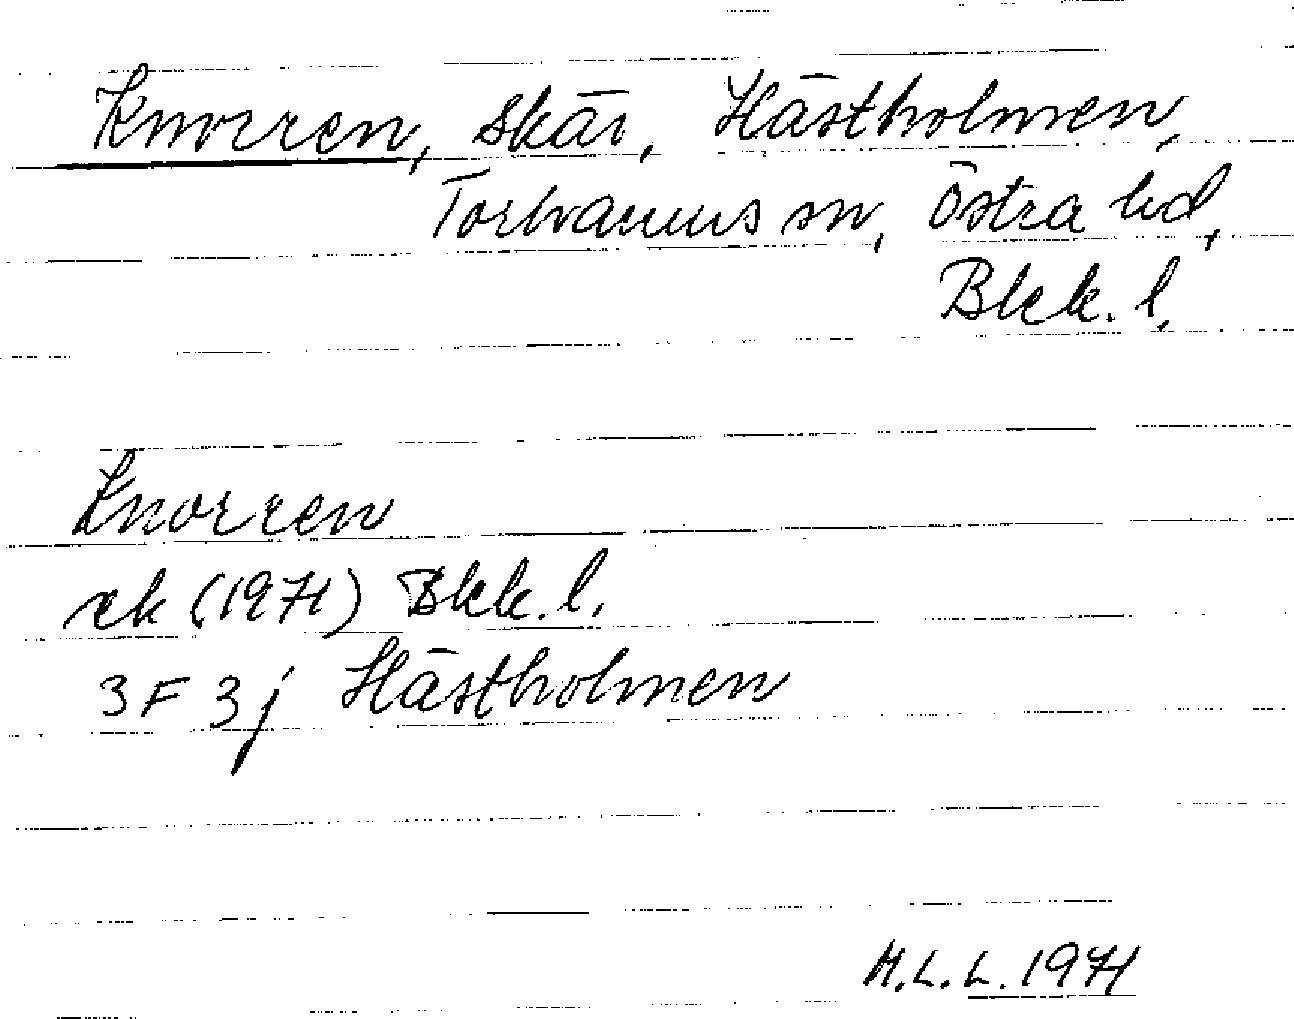 Knorren, skär, Hästholmen,
Torhamns sn, Östra hd,
Blek. l.
Knorren
ek (1971) Blek. l.
3F 3j Hästholmen
M.L.L. 1971